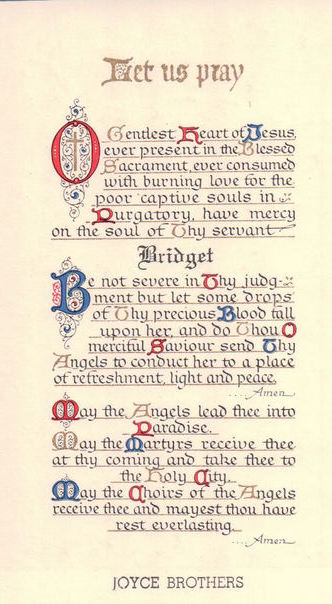 Let us pray
O Gentlest Heart of Jesus,
ever present in the Blessed
Sacrament, ever consumed
with burning love for the
poor captive souls in
Purgatory, have mercy
on the soul of Thy servant
Bridget
Be not severe in Thy judg-
ment but let some drops
of Thy precious Blood fall
upon her, and do Thou O
merciful Saviour send Thy
Angels to conduct her to a place
of refreshment, light and peace.
....Amen
May the Angels lead thee into
Paradise.
May the Martyrs receive thee
at thy coming and take thee to
the Holy City.
May the Choirs of the Angels
receive thee and mayest thou have
rest everlasting.
...Amen
JOYCE BROTHERS